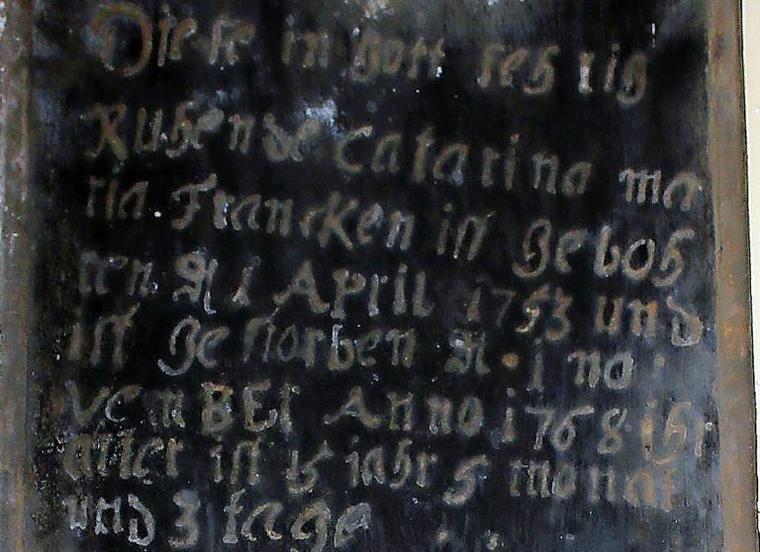 Diese in Gott sehlig
Ruhende Catarina ma
ria Francken ist geboh
ren A 1 April 1753 und
ist gestorben A. 1 no
vemBEr Anno 1768. ihr
alter ist 15 jahr 5 monat
und 3 tage